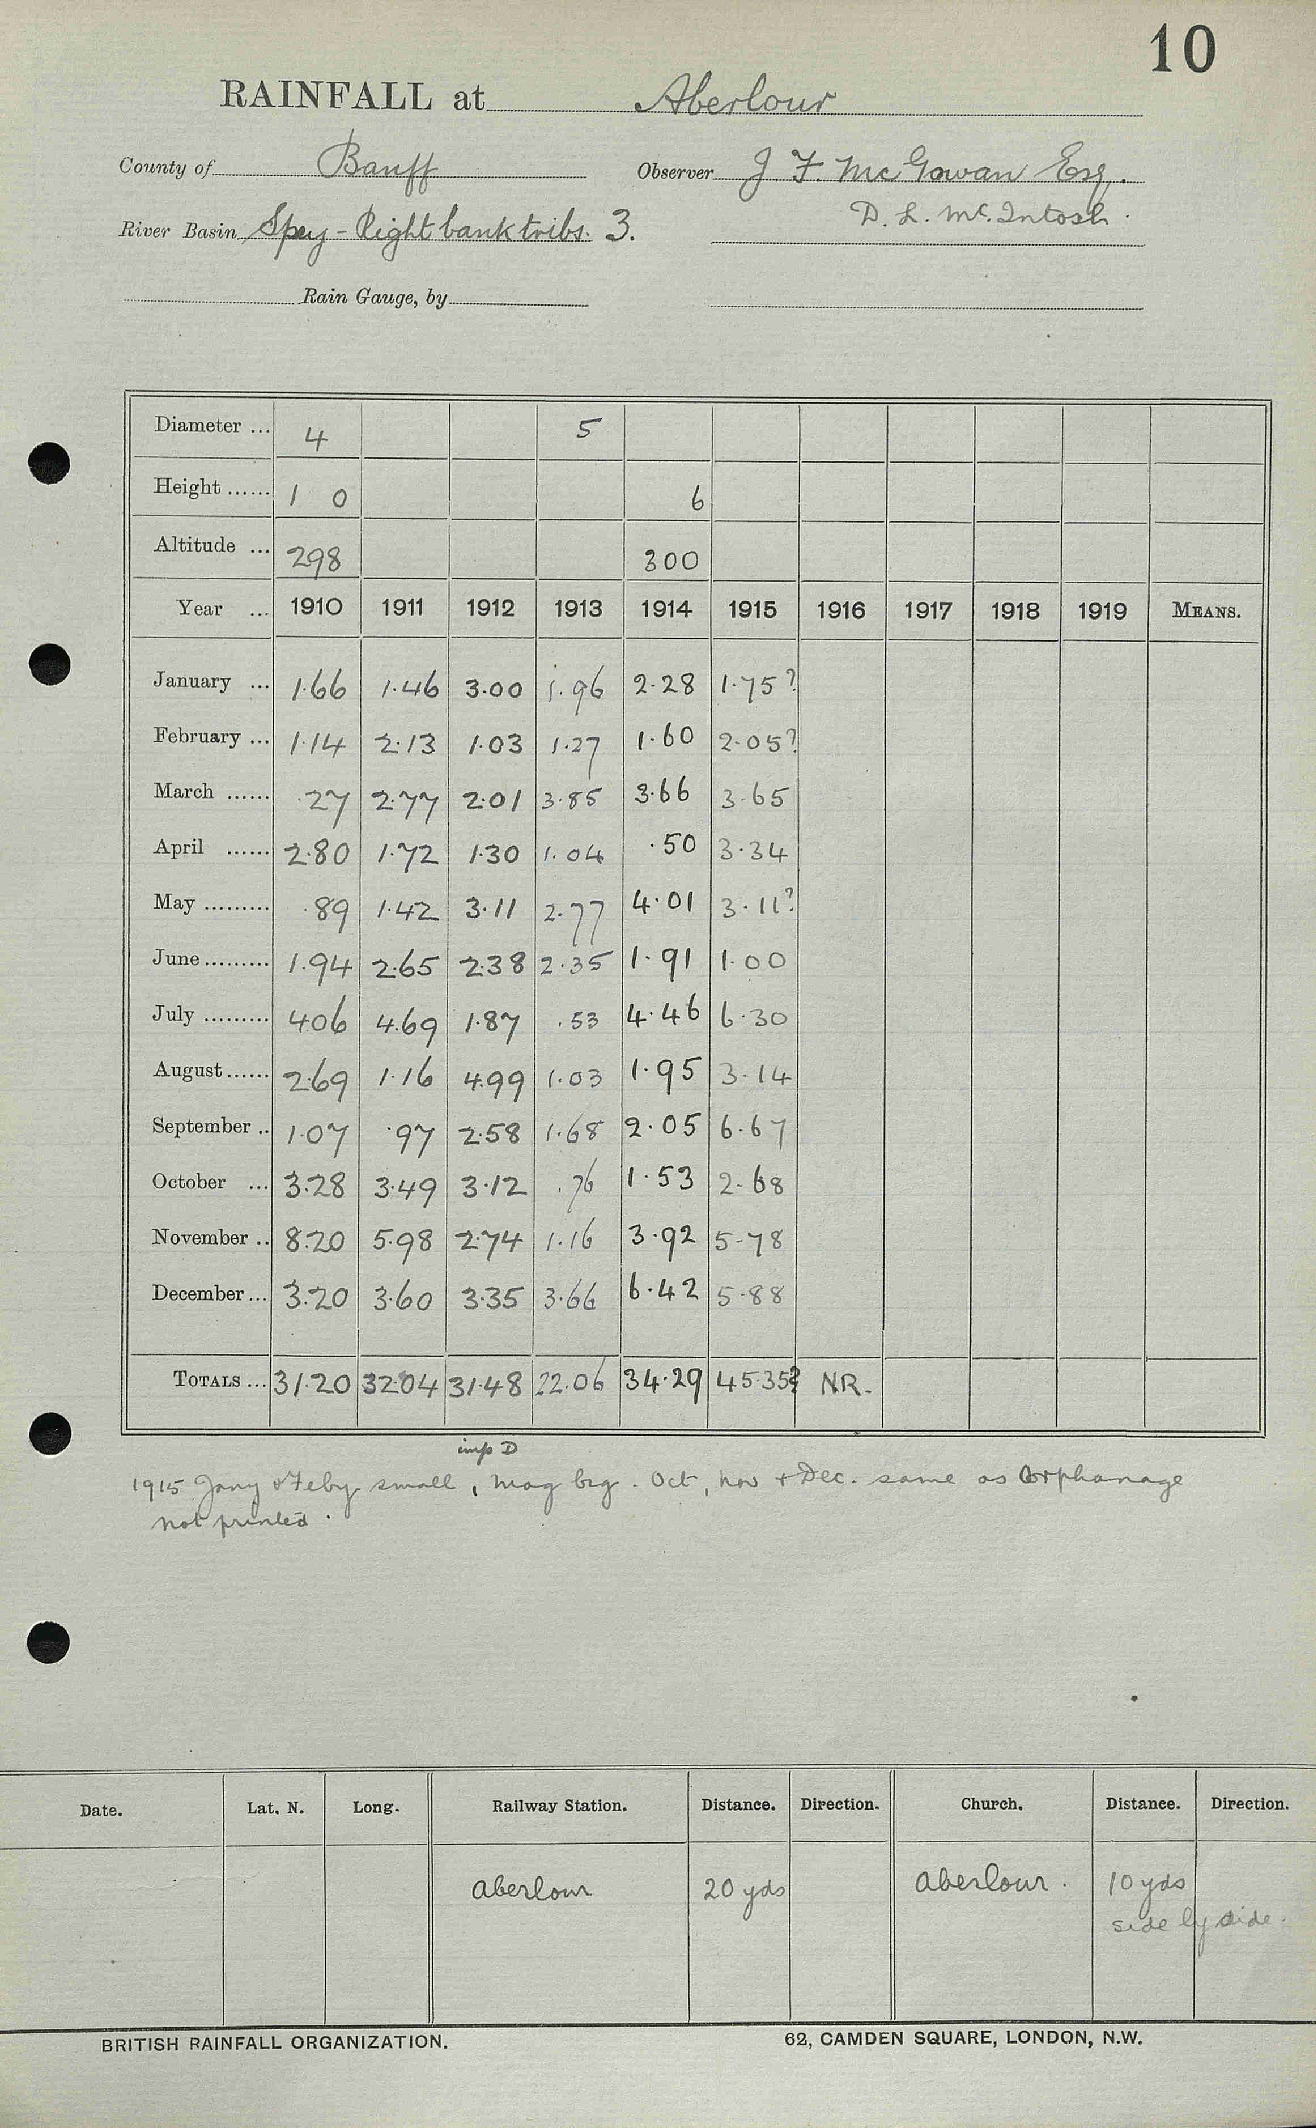 10
RAINFALL at Aberlour
County of Banff Observer J F. McGowan Esq.
D. L. McIntosh.
River Basin Spey - Right bank tribs. 3.
Rain Gauge, by
Diameter ... 4 5
Height ...... 1 0 6
Altitude ... 298 300
Year ... 1910 1911 1912 1913 1914 1915 1916 1917 1918 1919 MEANS.
January ... 1.66 1.46 3.00 1.96 2.28 1.75?
February ... 1.14 2.13 1.03 1.27 1.60 2.05?
March ...... .27 2.77 2.01 3.85 3.66 3.65
April ...... 2.80 1.72 1.30 1.04 .50 3.34
May ......... .89 1.42 3.11 2.77 4.01 3.11?
June ......... 1.94 2.65 2.38 2.35 1.91 1.00
July ......... 4.06 4.69 1.87 .53 4.46 6.30
August ...... 2.69 1.16 4.99 1.03 1.95 3.14
September .. 1.07 .97 2.58 1.68 2.05 6.67
October ... 3.28 3.49 3.12 .76 1.53 2.68
November .. 8.20 5.98 2.74 1.16 3.92 5.78
December ... 3.20 3.60 3.35 3.66 6.42 5.88
TOTALS ... 31.20 32.04 31.48 22.06 34.29 45.35? NR.
imp D
1915 Jany & Feby small, May big. Oct, Nov + Dec. same as Orphanage
not printed.
Date. Lat. N. Long. Railway Station. Distance. Direction. Church. Distance. Direction.
Aberlour 20 yds Aberlour. 10 yds
side by side.
BRITISH RAINFALL ORGANIZATION. 62, CAMDEN SQUARE, LONDON, N.W.